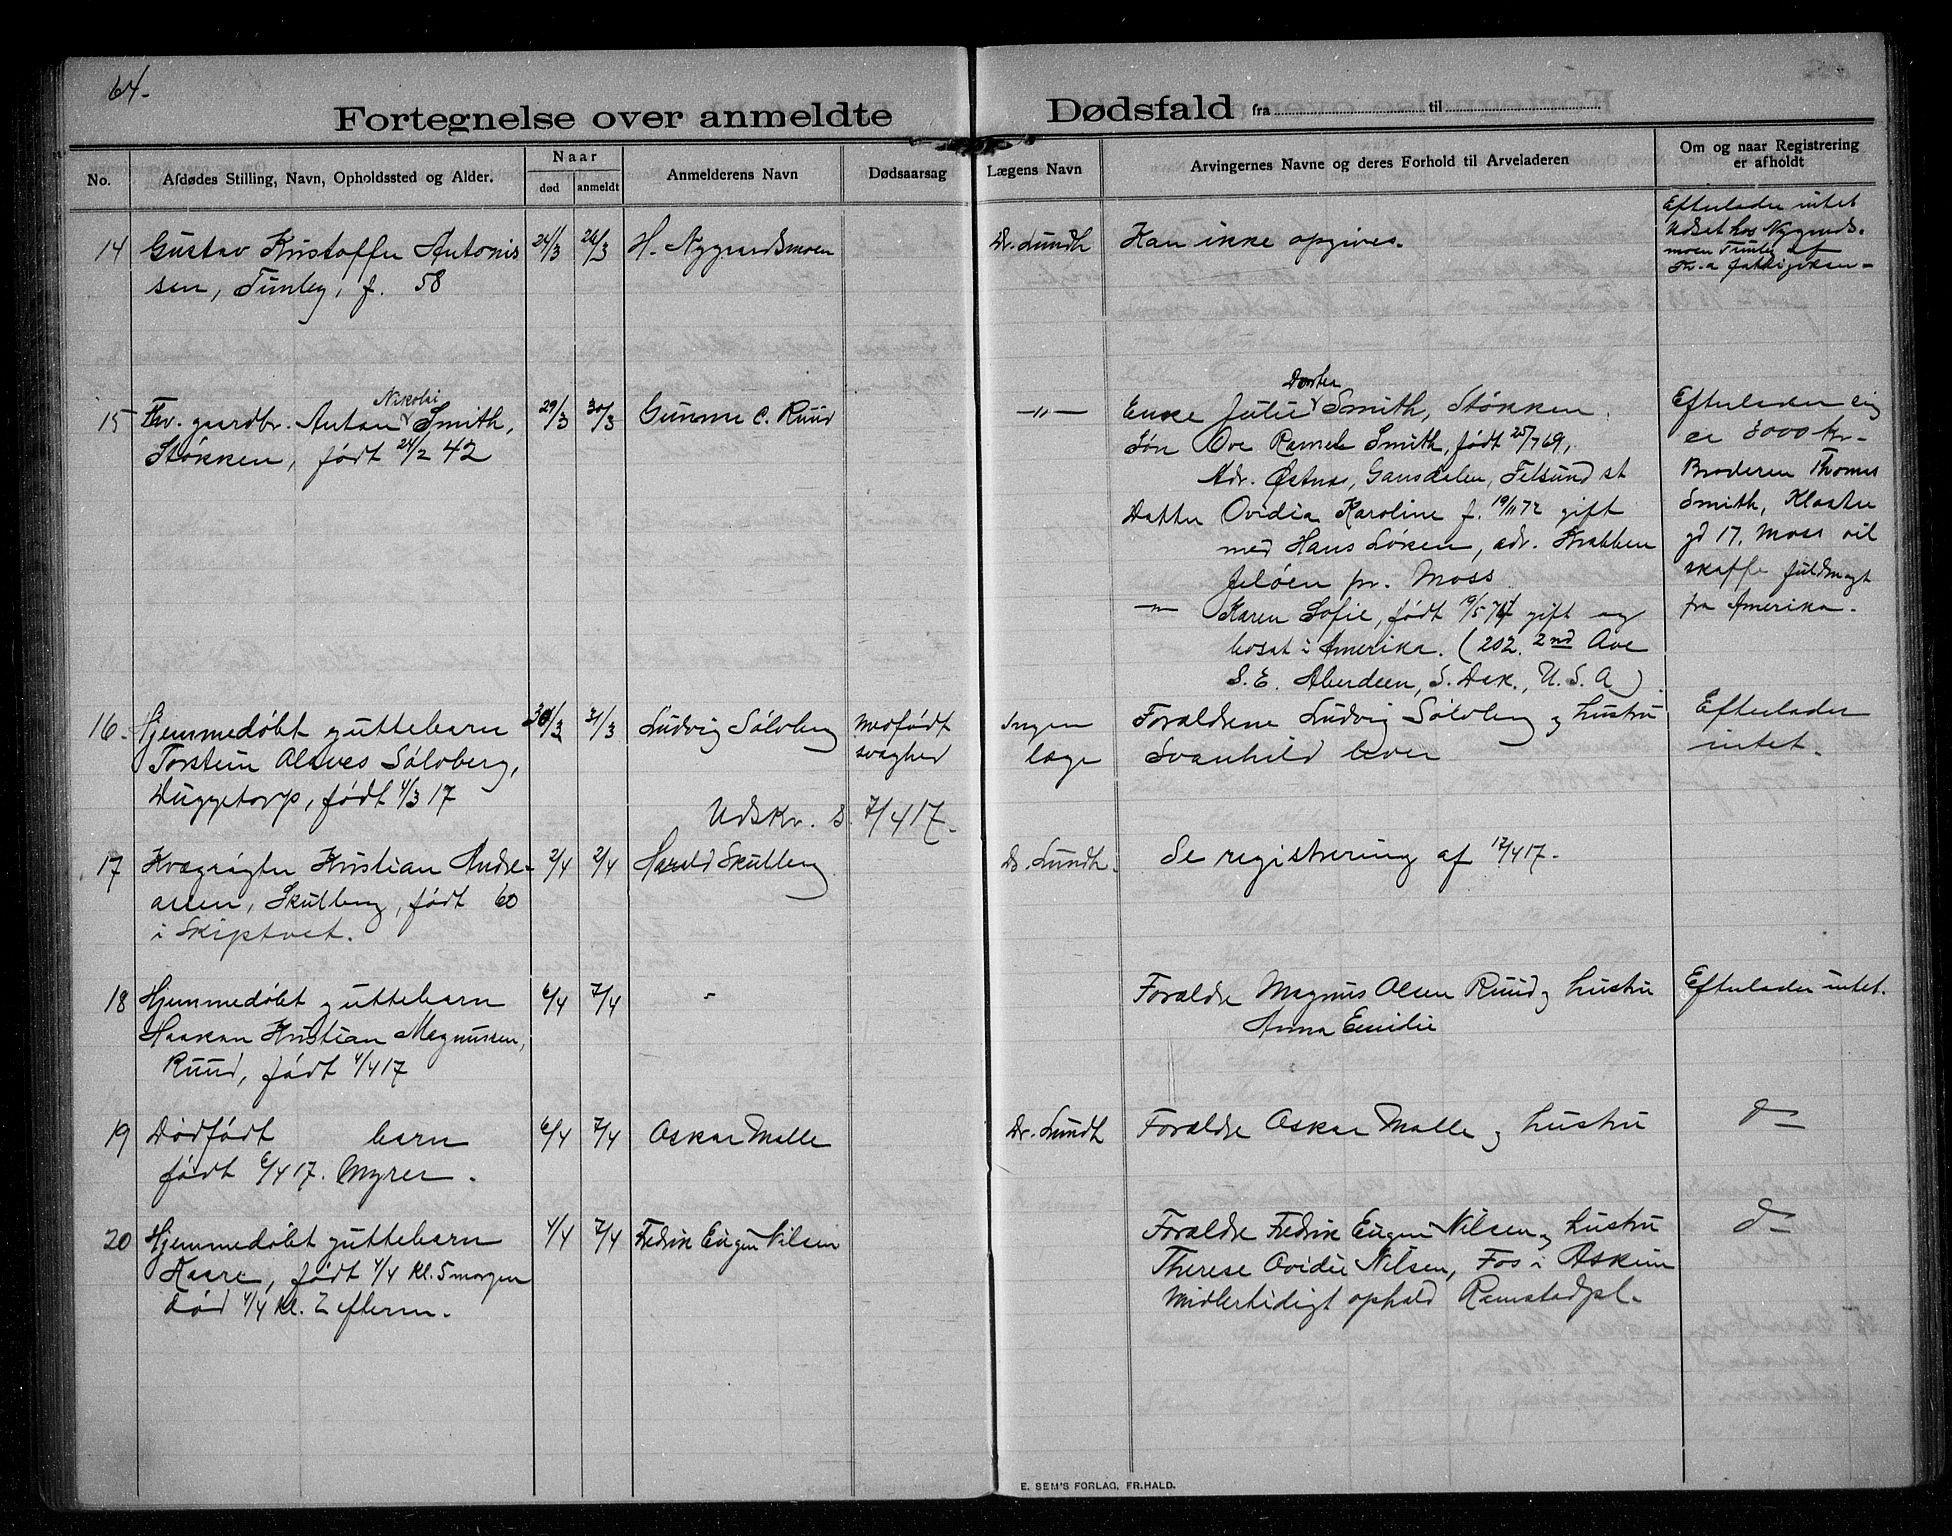 64.
Fortegnelse over anmeldte Dødsfald fra til
No.
Afdødes Stilling, Navn, Opholdssted og Alder.
Naar
død
anmeldt
Anmelderens Navn
Dødsaarsag
Lægens Navn
Arvingernes Navne og deres Forhold til Arveladeren
Om og naar Registrering
er afholdt
14 Gustav Kristoffer Antonis 24/3 26/3 H. Nygaardsmoen Dr. Lundh Kan ikke opgives.
sen, Timby, f. 58
Efterlader intet
Udsat hos Nygaards-
moen Timby af
fattigvæsen-
15 Fhv. gaardbr. Anton Nikolai Smith, 29/3 30/3 Gunnar C. Ruud —"—
Støkken, født 24/2 42
Enke Julie Dorthea Smith, Støkken.
Søn Ove Ramel Smith, født 25/7 69,
Adr. Østnes, Gansdalen, Fetsund st
Datter Ovidia Karoline f. 19/11 72 gift
med Hans Løken, adr. Krabben
Jeløen pr. Moss
—"— Karen Sofie, født 19/5 74 gift og
bosat i Amerika. (202. 2nd Ave
S. E. Aberdeen, S. Dak., U. S. A).
Efterlader sig
ca 3000 kr-
Broderen Thomas
Smith, Kloster
gd 17. Moss vil
skaffe fuldmagt
fra Amerika.
16. Hjemmedøbt guttebarn 30/3 31/3 Ludvig Sølvberg medfødt Ingen
Torstein Alaves Sølvberg, svaghed læge
Duggetorp, født 4/3 17
Forældrene Ludvig Sølvberg og hustru
Svanhild lever
Efterlader
intet.
Udskr. s. 7/4 17.
17 Kvægrøgter Kristian Andre- 2/4 2/4 Harald Skulberg Dr. Lundh. Se registrering af 17/4 17.
asen, Skulberg, født 60
i Skiptvet.
18 Hjemmedøbt guttebarn 6/4 7/4 - Forældre Magnus Olsen Ruud og hustru Efterlader intet.
Haakon Kristian Magnussen, Anna Emilie
Ruud, født 4/4 17
19 Dødfødt barn 6/4 7/4 Oskar Malle Dr. Lundh Forældre Oskar Malle og hustru d—
født 6/4 17. Myrer.
20 Hjemmedøbt guttebarn 4/4 7/4 Fredrik Eugen Nilsen Forældre Fredrik Eugen Nilsen og hustru d—
Kaare, født 4/4 kl. 5 morgen Therese Ovidie Nilsen, Fos i Askim
død 4/4 kl. 2 efterm. Midlertidigt ophold Ramstadpl.
E. SEM'S FORLAG, FR.HALD.